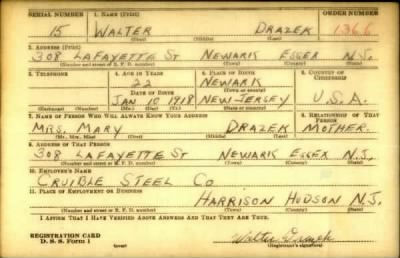 SERIAL NUMBER 1. NAME (Print) ORDER NUMBER
15 WALTER DRAZEK 1366
(First) (Middle) (Last)
2. ADDRESS (Print)
308 LAFAYETTE ST NEWARK ESSEX N.J.
(Number and street or R. F. D. number) (Town) (County) (State)
3. TELEPHONE 4. AGE IN YEARS 5. PLACE OF BIRTH 6. COUNTRY OF CITIZENSHIP
22 NEWARK
DATE OF BIRTH (Town or county)
JAN 10 1918 NEW-JERSEY U.S.A.
(Exchange) (Number) (Mo.) (Day) (Yr.) (State or country)
7. NAME OF PERSON WHO WILL ALWAYS KNOW YOUR ADDRESS 8. RELATIONSHIP OF THAT PERSON
MRS. MARY DRAZEK MOTHER.
(Mr., Mrs., Miss) (First) (Middle) (Last)
9. ADDRESS OF THAT PERSON
308 LAFAYETTE ST NEWARK ESSEX N.J.
(Number and street or R. F. D. number) (Town) (County) (State)
10. EMPLOYER'S NAME
CRUIBLE STEEL CO
11. PLACE OF EMPLOYMENT OR BUSINESS
HARRISON HUDSON N.J.
(Number and street or R. F. D. number) (Town) (County) (State)
I AFFIRM THAT I HAVE VERIFIED ABOVE ANSWERS AND THAT THEY ARE TRUE.
REGISTRATION CARD
D. S. S. Form 1 (over) Walter Drazek
(Registrant's signature)